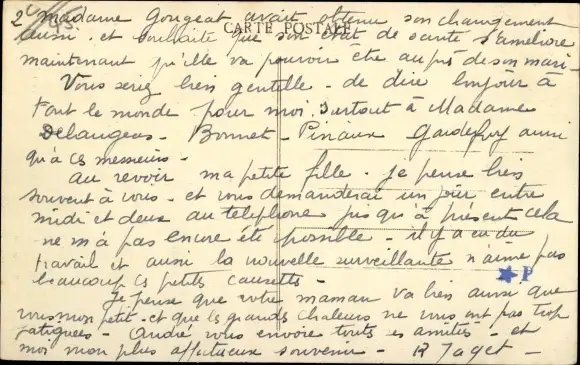 2 Madame Gougeat avait obtenu son changement
CARTE POSTALE
aussi - et souhaite que son état de santé s'améliore
maintenant qu'elle va pouvoir être auprès de son mari -
Vous serez bien gentille - de dire bonjour à
tout le monde pour moi. Surtout à Madame
Delaugens - Bonnet - Pinaux aussi
qu'à ces messieurs -
Au revoir ma petite fille - Je pense bien
souvent à vous - et vous demanderai un jour entre
midi et deux au téléphone jusqu'à présent cela
ne m'a pas encore été possible - il y a eu du
travail et aussi la nouvelle surveillante n'aime pas
beaucoup ces petits causettes -
P
Je pense que votre maman va bien ainsi que
vous mon petit - et que les grands chaleurs ne vous ont pas trop
fatiguées - André vous envoie toutes ses amitiés - et
moi mon plus affectueux souvenir - R Jaget -